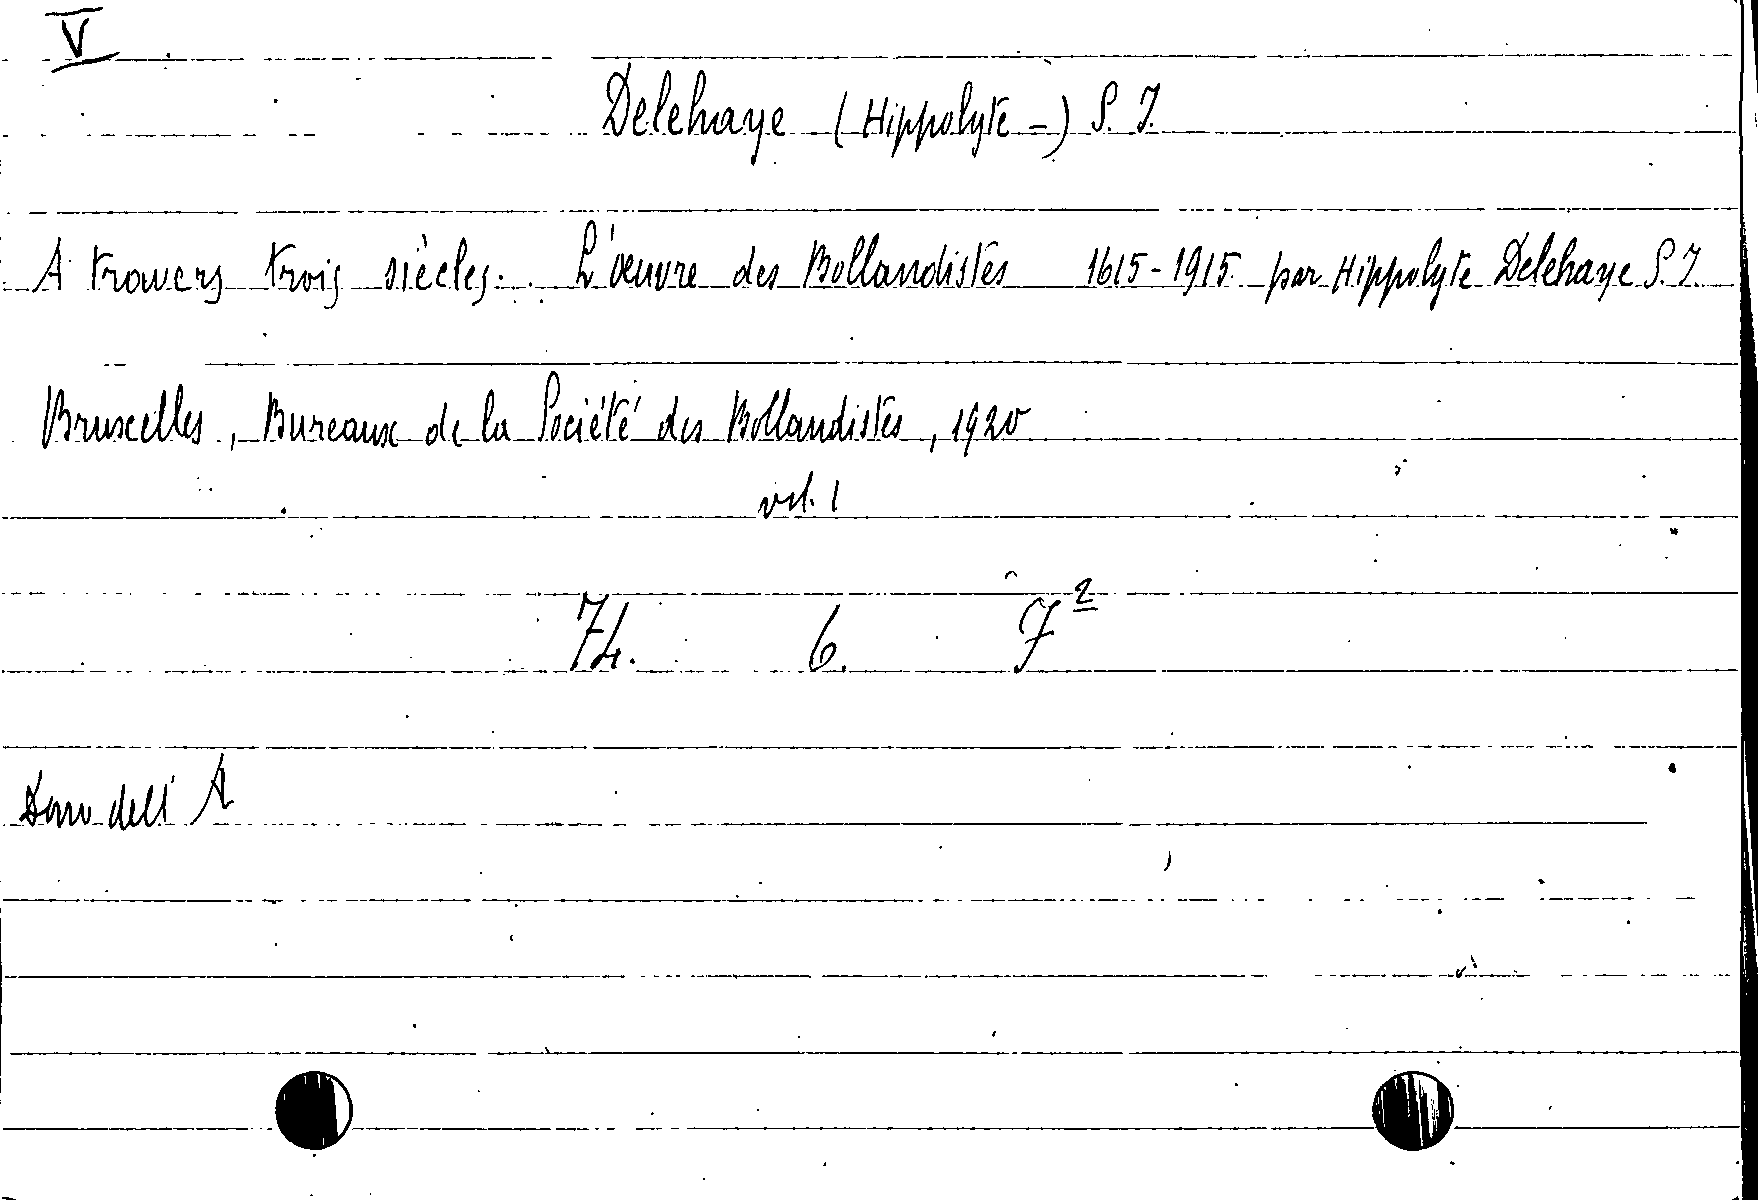 V
Delehaye (Hippolyte -) S. J.
A travers trois siècles. L'œuvre des Bollandistes 1615-1915 par Hippolyte Delehaye S. J.
Bruxelles, Bureaux de la Société des Bollandistes, 1920
vol. 1
74. 6. F²
Dono dell' A